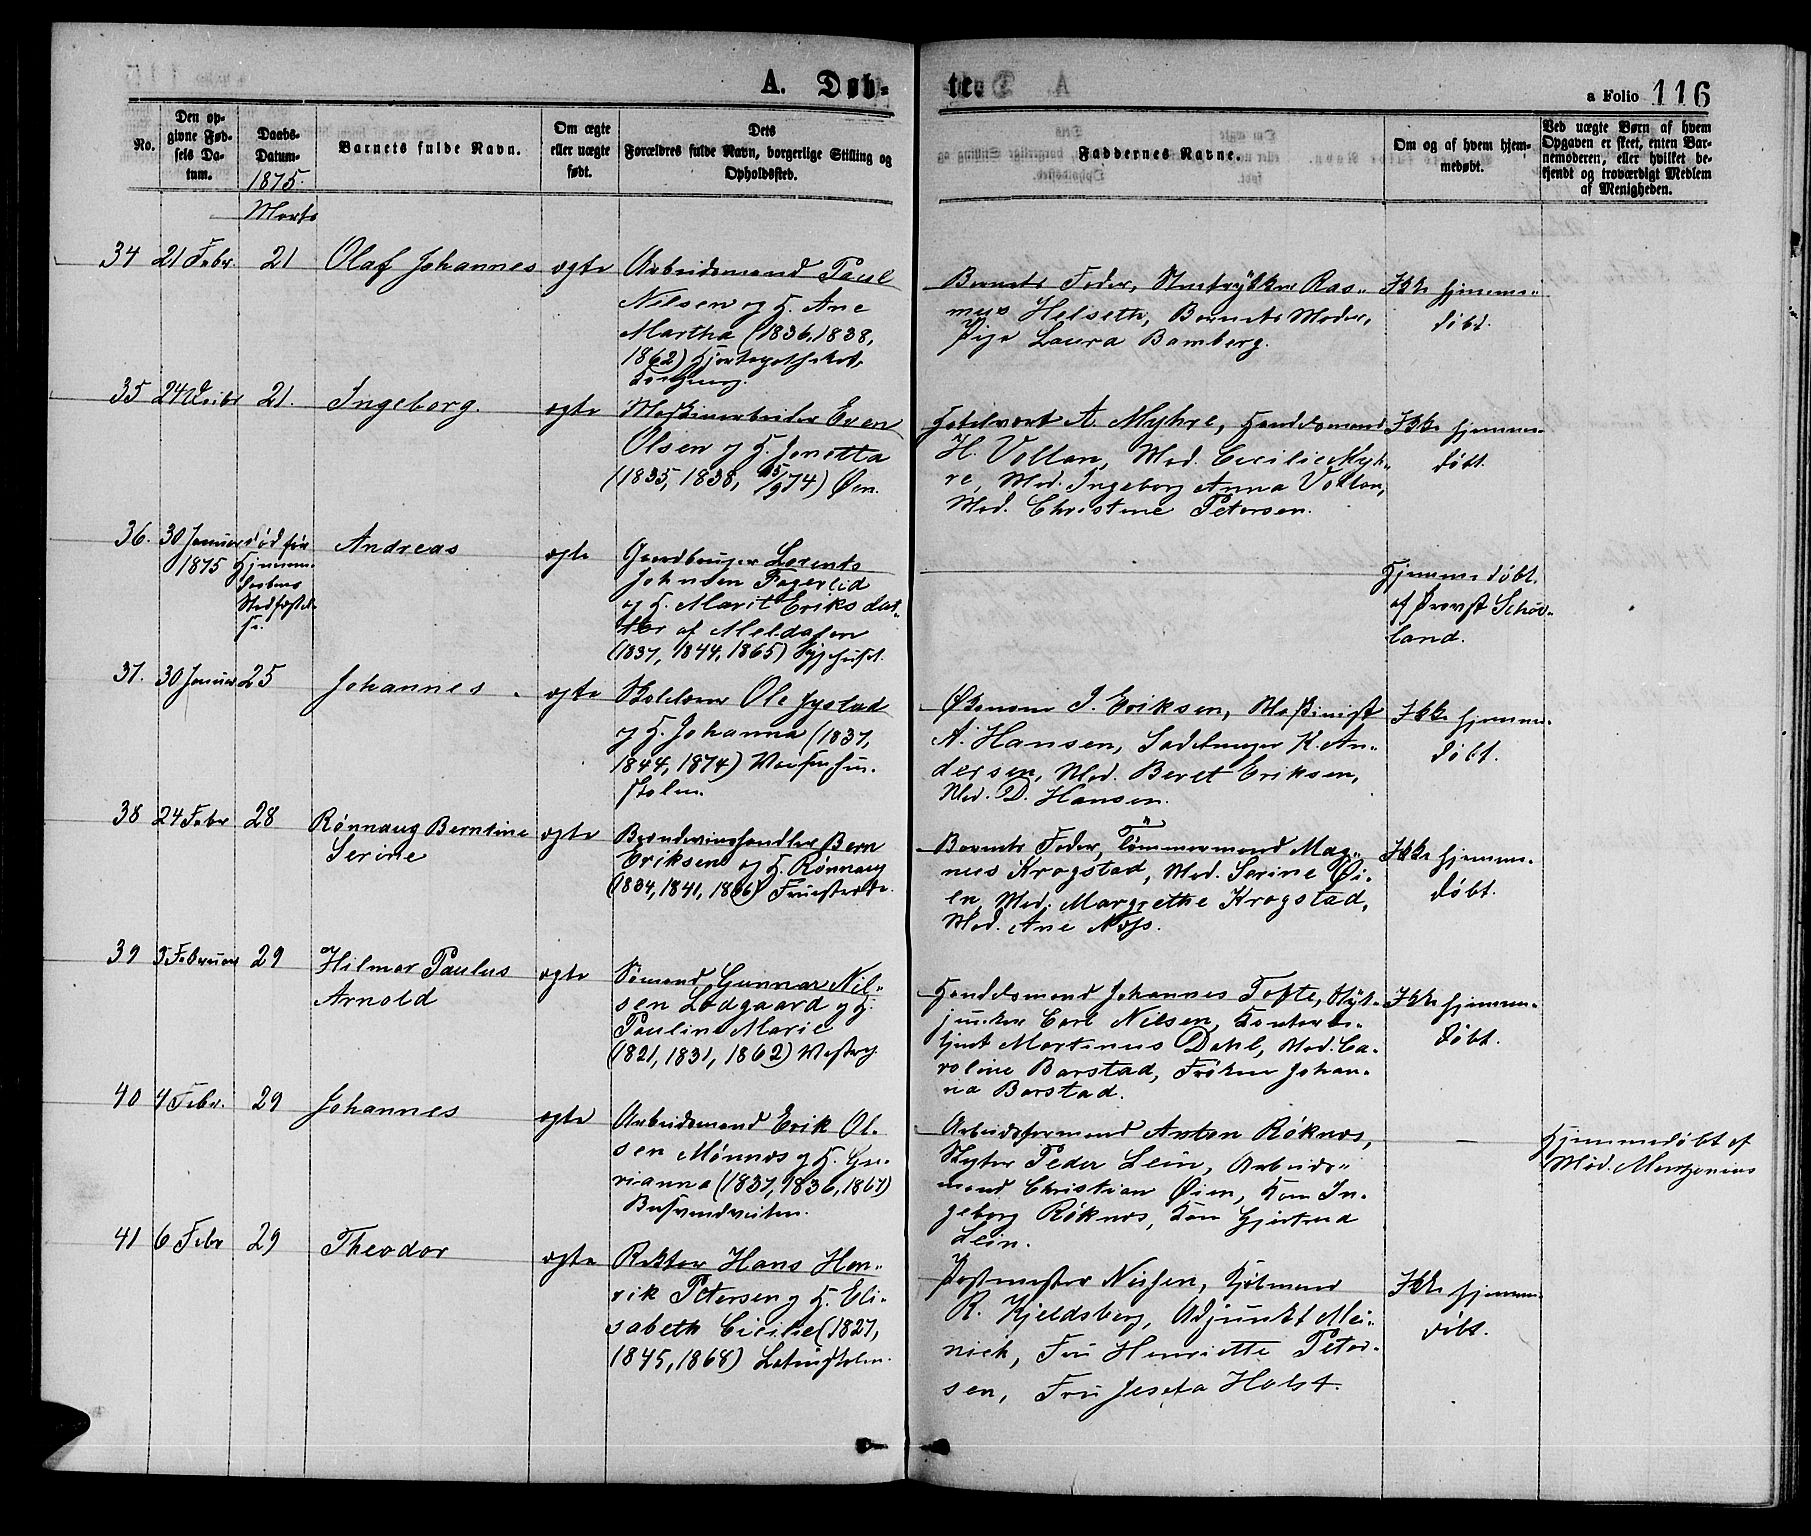 A. Døb-
te.
a Folio 116
No.
Den op-
givne Fød-
sels Da-
tum.
Daabs-
Datum.
1875.
Barnets fulde Navn.
Om ægte
eller uægte
født.
Dets
Forældres fulde Navn, borgerlige Stilling og
Opholdssted.
Faddernes Navne.
Om og af hvem hjem-
medøbt.
Ved uægte Børn af hvem
Opgaven er skeet, enten Bar-
nemoderen, eller hvilket be-
kjendt og troværdigt Medlem
af Menigheden.
Marts
34 21 Febr 21 Olaf Johannes ægte Arbeidsmand Paul
Nilsen og H. Ane
Martha (1836, 1838,
1862) Hjorteapotheket,
Barnets Fader, Ras-
mus Helseth, Barnets Moder,
Pige Laura Bamberg.
Ikke hjemme-
døbt.
35 24 21. Ingeborg. ægte Maskinarbeider Even
Olsen og H. Jonetta
(1835, 1838, 25/9 74) Øen.
A Myhre, Handelsmand
H. Vollan, Mad. Cecilie Myh-
re, Mad. Ingeborg Anna Vollan,
Mad. Christine Petersen.
Ikke hjemme-
døbt.
36. 30 Januar
1875
død før
Hjemme-
daabens
Stadfæstel-
se.
Andreas ægte Gaardbruger Lorents
Johnsen Fagerlid
og H. Marit Eriksdat-
ter af Meldalen
(1837, 1844, 1865) Sygehuset.
Hjemmedøbt
af Provst Schøi-
land.
37. 30 Januar 25 Johannes. ægte Ole Jystad
og H. Johanna (1837,
1844, 1874) Waisenhus-
skolen.
Økonom I. Eriksen, Maskinist
A. Hansen, Sadelmager K. An-
dersen, Mad. Beret Eriksen,
Mad. D. Hansen.
Ikke hjemme-
døbt.
38 24 Febr 28 Rønnaug Berntine
Serine
ægte Brændevinshandler Bern
Eriksen og H. Rønnaug
(1834, 1841, 1866)
Barnets Fader, Tømmermand Mag-
nus Krogstad, Mad. Serine Øi-
en, Mad. Margrethe Krogstad,
Mad. Ane Næss.
Ikke hjemme-
døbt.
39 3 Februar 29 Hilmar Paulus
Arnold
ægte Sømand Gunnar Nil-
sen Lodgaard og H.
Pauline Marie
(1821, 1831, 1862)
Handelsmand Johannes Tofte,
Carl Nilsen, Kontorbe-
tjent Martinus Dahl, Mad. Ca-
roline Barstad, Frøken Johan-
na Barstad.
Ikke hjemme-
døbt.
40 4 Febr. 29 Johannes ægte Arbeidsmand Erik Ol-
sen Mønnæs og H. Gu-
rianna (1837, 1836, 1867)
Arbeidsformand Anton Røknæs,
Peder Lein, Arbeids-
mand Christian Øien, Kone In-
geborg Røknæs, Kone Gjertrud
Lein.
—
Hjemmedøbt af
Mad.
41 6 Febr 29 Theodor ægte Rektor Hans Hen-
rik Petersen og H. Eli-
sabeth Cicilie (1827,
1845, 1868) Latinskolen.
Postmester Nissen, Kjøbmand
R. Kjeldsberg, Adjunkt Mei-
nich, Fru Henriette Peter-
sen, Fru Josefa Holst.
Ikke hjemme-
døbt.